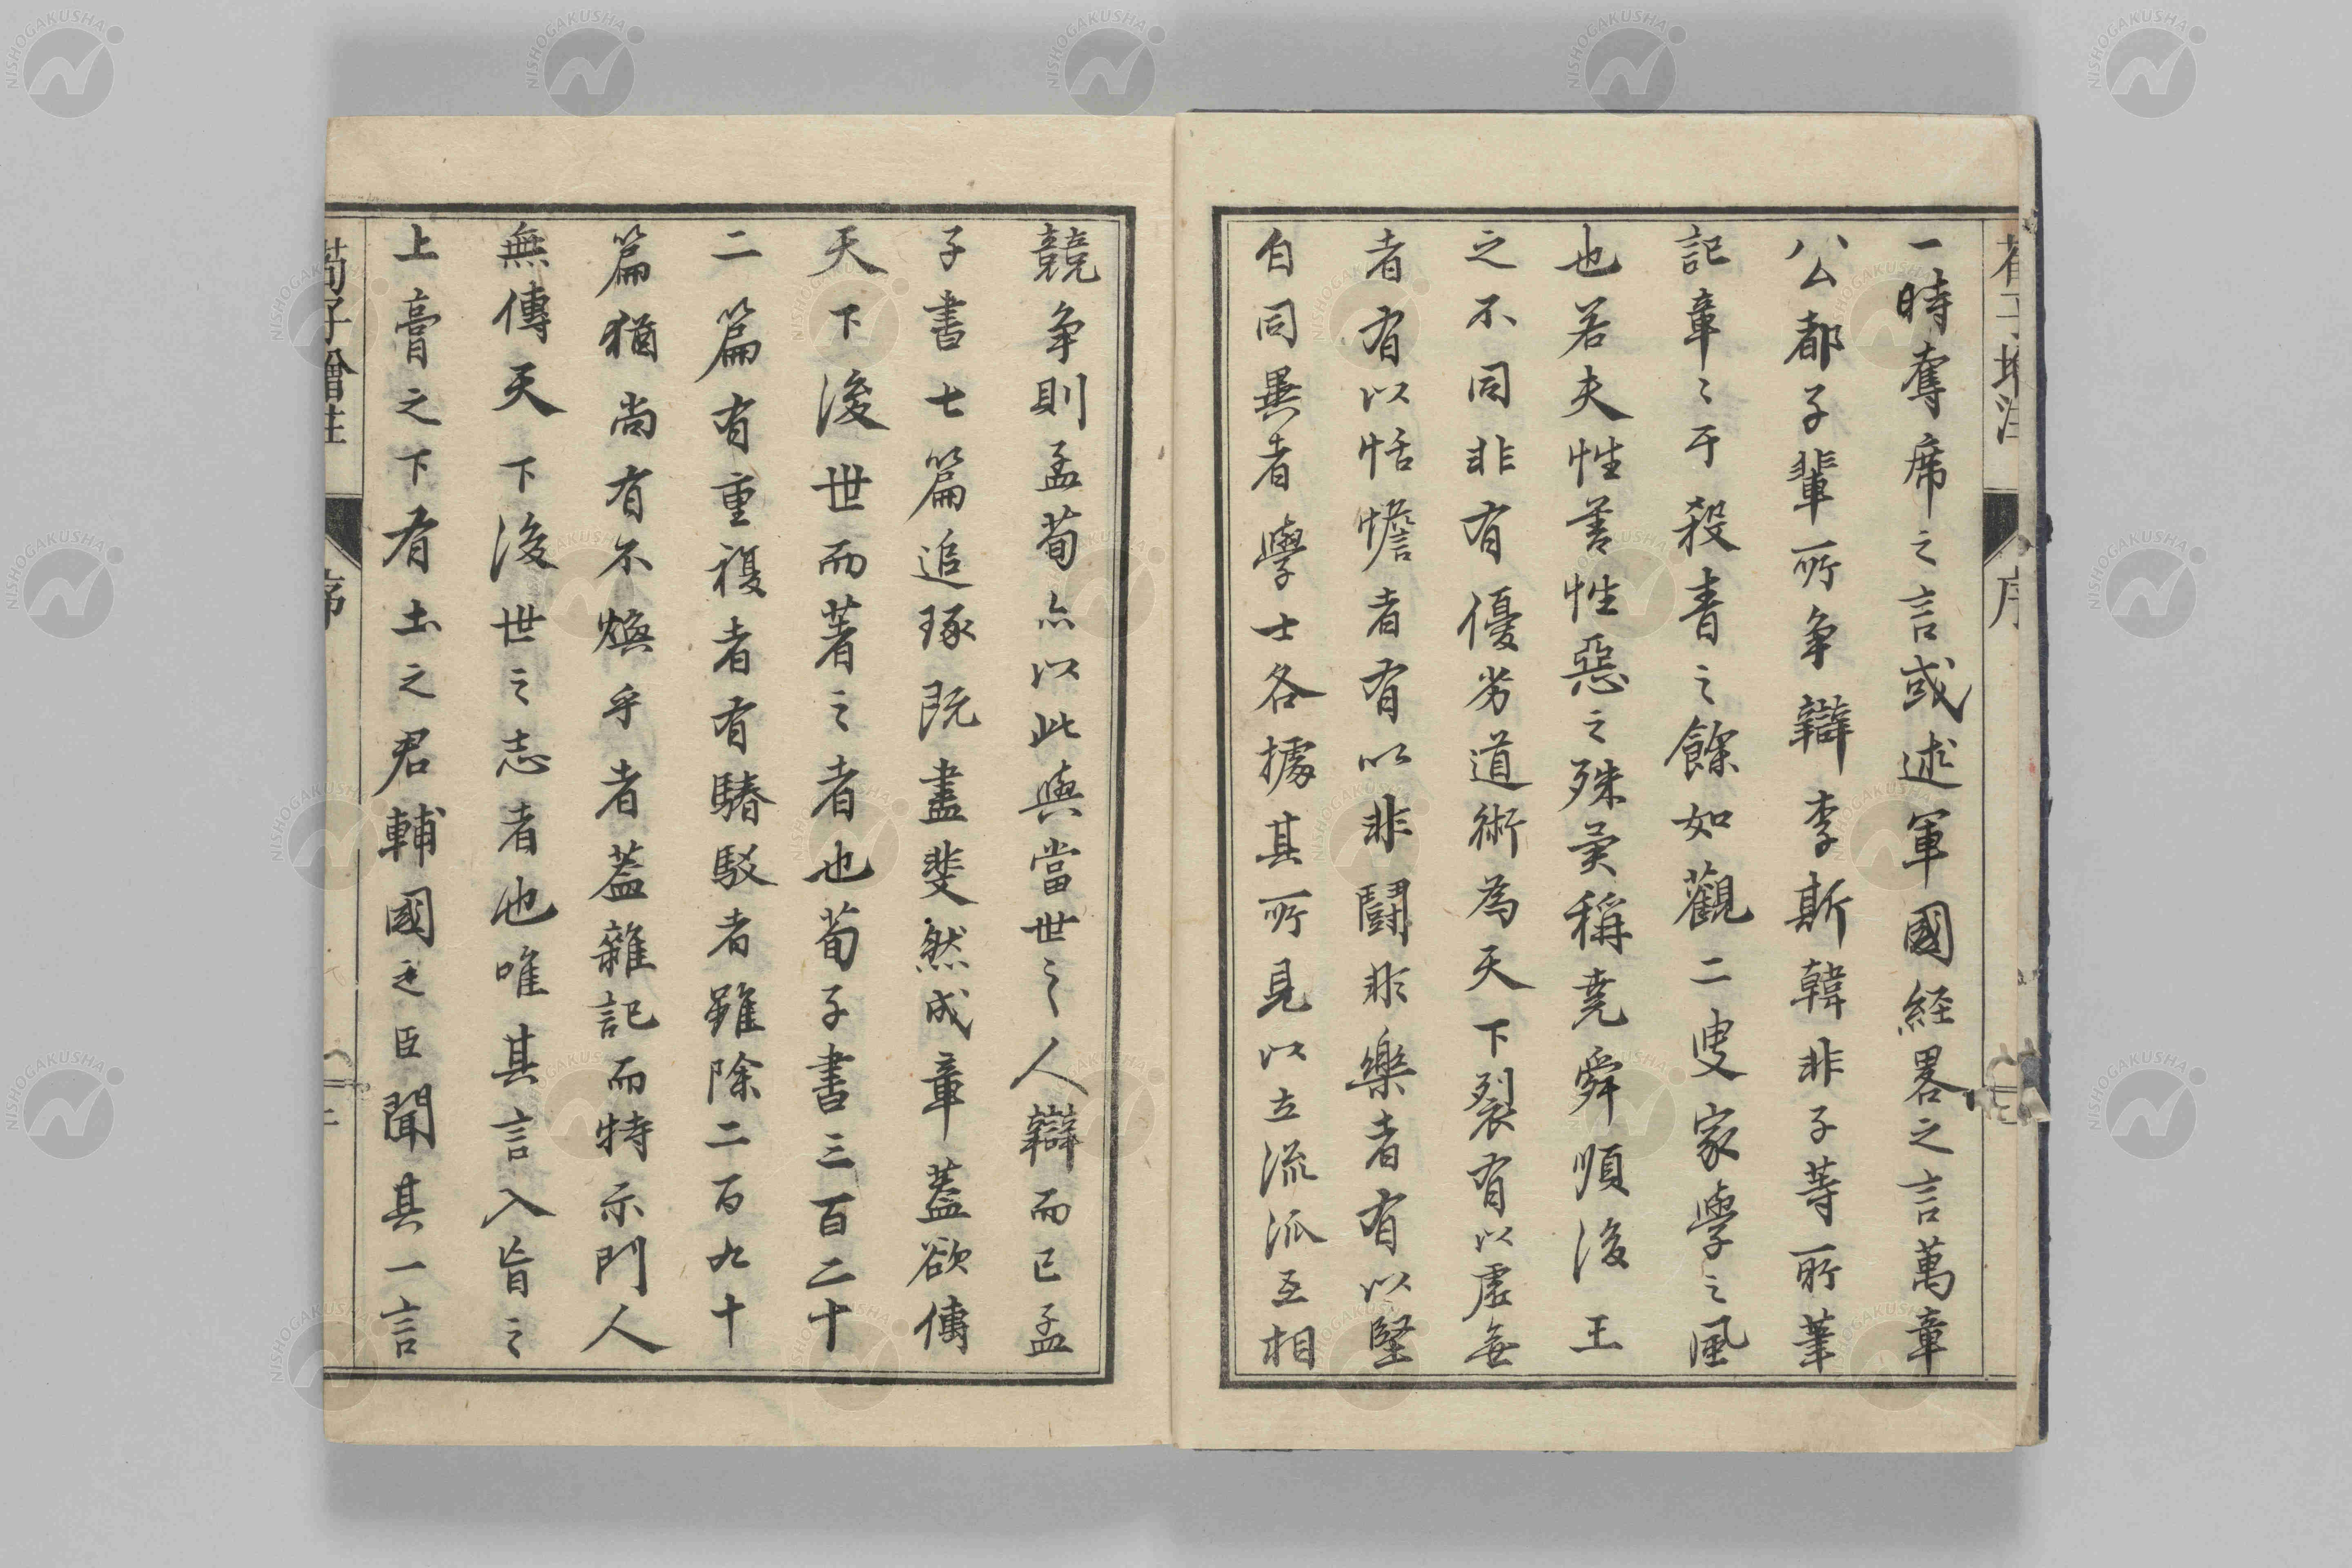 荀子增注
序
一時奪席之言或述軍國経畧之言萬章
公都子輩所争辯李斯韓非子等所筆
記章〻于殺青之餘如觀二叟家學之風
也若夫性善性惡之殊奚稱堯舜順後王
之不同非有優劣道術為天下裂有以虚無
者有以恬憺者有以非鬪非樂者有以堅
白同異者學士各據其所見以立流派互相
競争則孟荀亦以此與當世之人辯而已孟
子書七篇追琢既盡斐然成章蓋欲傳
天下後世而著之者也荀子書三百二十
二篇有重複者有騞駁者雖除二百九十
篇猶尚有不煥乎者蓋雜記而特示門人
無傳天下後世之志者也唯其言入旨之
上膏之下有土之君輔國之臣聞其一言
荀子增註
序
二
NISHOGAKUSHA